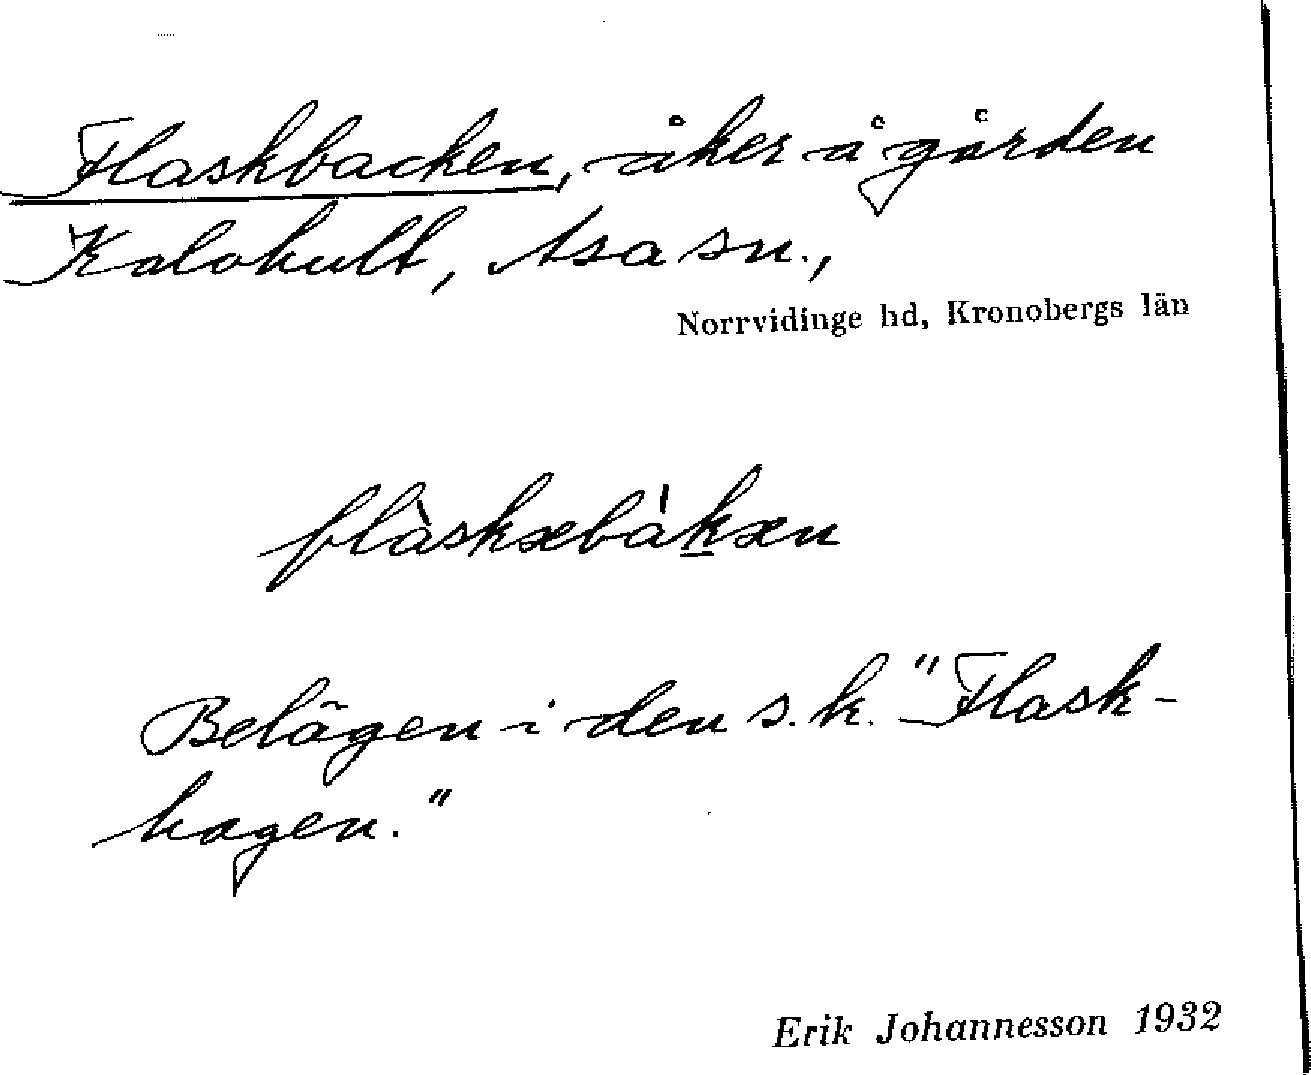 Flaskbacken, åker å gården
Kalvhult, Asa sn.,
Norrvidinge hd, Kronobergs län
flàskæbàkæn
Belägen i den s.k. "Flask-
hagen."
Erik Johannesson 1932